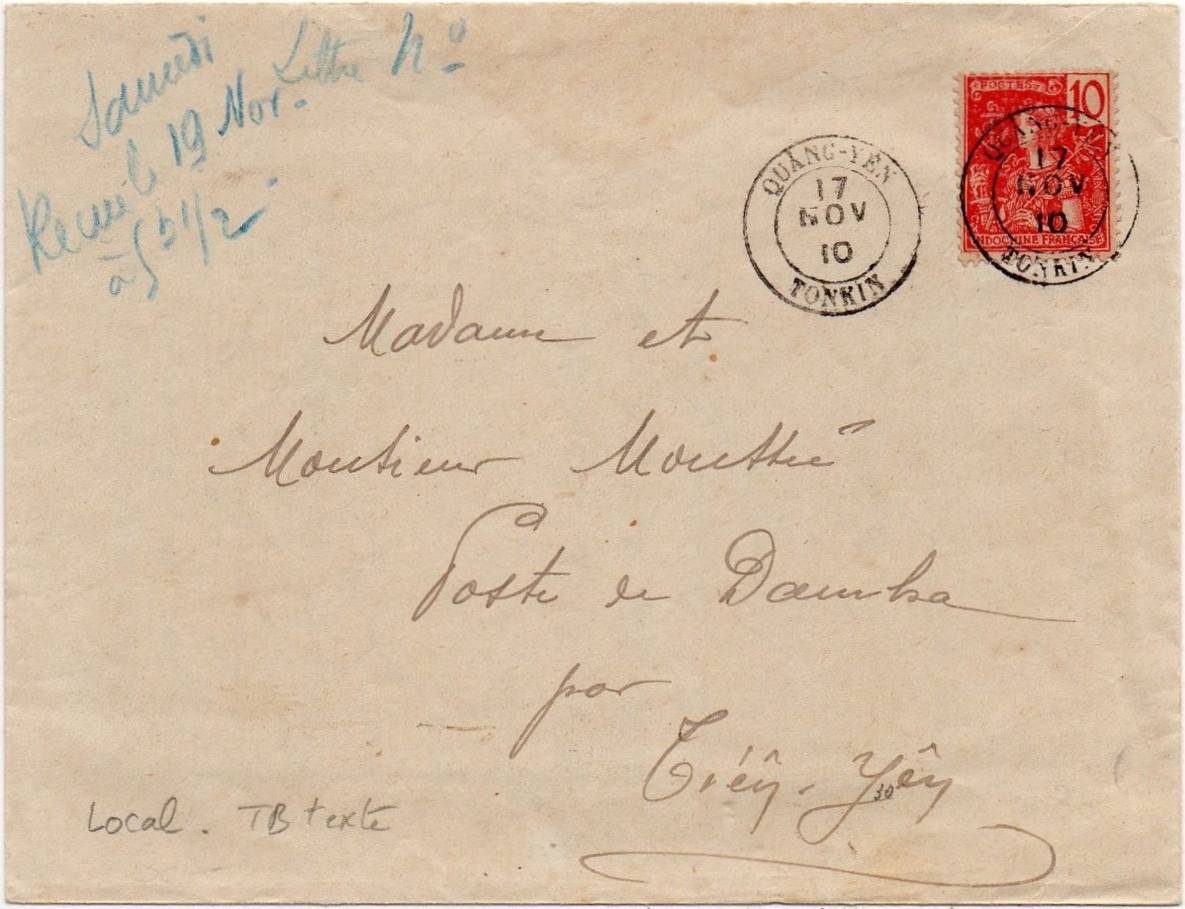 Samedi
Lettre No
Recue le 19 Nov.
à 5 h 1/2
POSTES
10
INDOCHINE FRANÇAISE
QUANG-YÊN
17
NOV
10
TONKIN
QUANG-YÊN
17
NOV
10
TONKIN
Madame et
Monsieur
Poste de Damha
par
Tiêÿ-Yêÿ
30
Local. TB texte